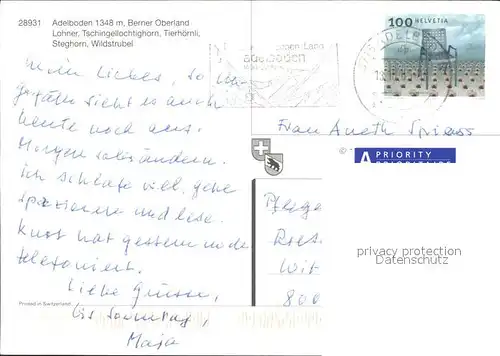 28931 Adelboden 1348 m, Berner Oberland
Lohner, Tschingellochtighorn, Tierhörnli,
Steghorn, Wildstrubel
Mein Liebes, so
gefällt sieht es auch
heute noch aus.
Morgen soll's ändern.
Ich schlafe viel, gehe
spazieren und lese.
Kurt hat gestern
telefoniert.
Liebe Grüsse,
bis Sonntag,
Maja
Printed in Switzerland
adelboden
100 HELVETIA
Frau Aneth Spiess
A PRIORITY
Pflege
Wit
800
privacy protection
Datenschutz